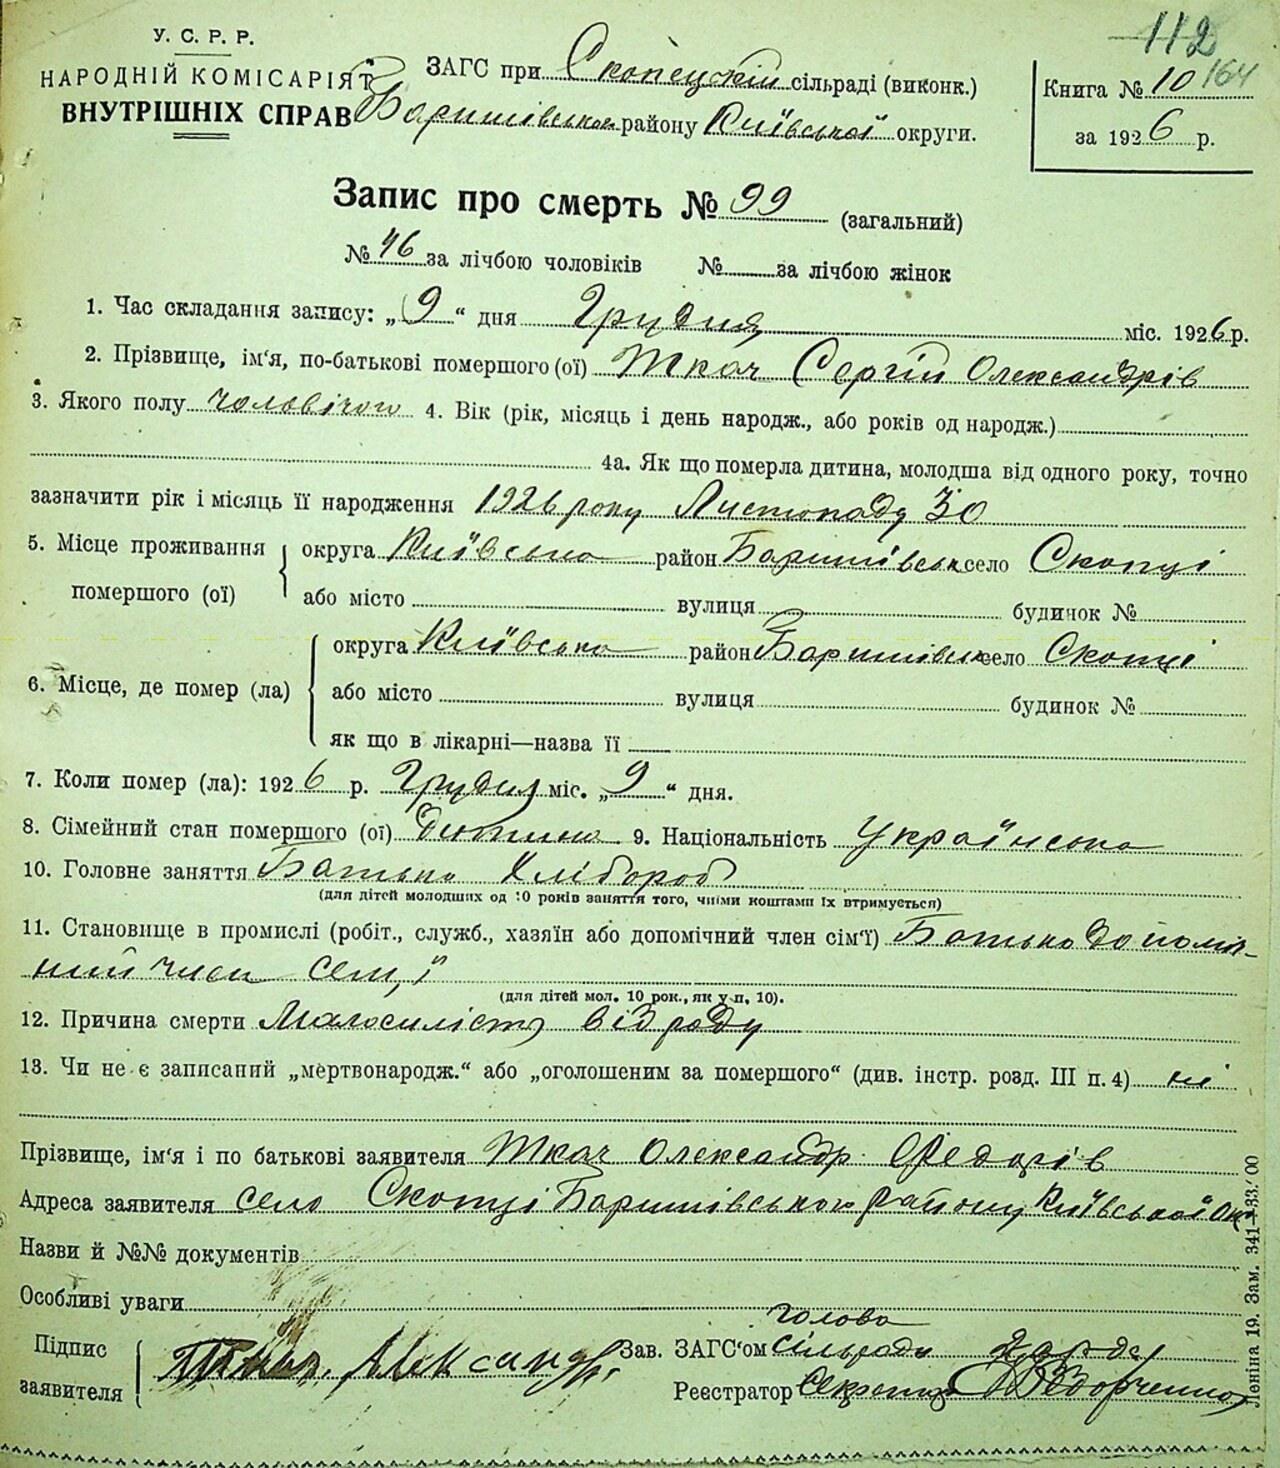 112
164
У. С. Р. Р.
НАРОДНІЙ КОМІСАРІЯТ
ВНУТРІШНІХ СПРАВ
ЗАГС при Скопецькій сільраді (виконк.)
Баришівськ району Київської округи.
Книга № 10
за 1926 р.
Запис про смерть № 99 (загальний)
№ 46 за лічбою чоловіків № за лічбою жінок
1. Час складання запису: „9“ дня Грудня міс. 1926 р.
2. Прізвище, ім'я, по-батькові помершого (ої) Ткач Сергій Олександрів
3. Якого полу чоловічого 4. Вік (рік, місяць і день народж., або років од народж.)
4а. Як що померла дитина, молодша від одного року, точно
зазначити рік і місяць її народження 1926 року Листопаду 30
5. Місце проживання помершого (ої) округа Київська район Баришівськ село Скопці
або місто вулиця будинок №
6. Місце, де помер (ла) округа Київська район Баришівськ село Скопці
або місто вулиця будинок №
як що в лікарні—назва її
7. Коли помер (ла): 1926 р. Грудня міс. „9“ дня.
8. Сімейний стан помершого (ої) Дитина 9. Національність Українська
10. Головне заняття Батько Хлібороб
(для дітей молодших од 10 років заняття того, чиїми коштами їх втримується)
11. Становище в промислі (робіт., служб., хазяїн або допомічний член сім'ї) Батько допоміч-
ний член сем,ї
(для дітей мол. 10 рок., як у п. 10).
12. Причина смерти Малосилість від роду
13. Чи не є записаний „мертвонародж.“ або „оголошеним за помершого“ (див. інстр. розд. III п. 4) ні
Прізвище, ім'я і по батькові заявителя Ткач Олександр Федорів
Адреса заявителя село Скопці Баришівського району Київської Окр
Назви й №№ документів
Особливі уваги
Підпис заявителя Ткач Александр.
голова
Зав. ЗАГС'ом сільради
Реєстратор Секретар Федорченко
Леніна 19. Зам. 341—33.000